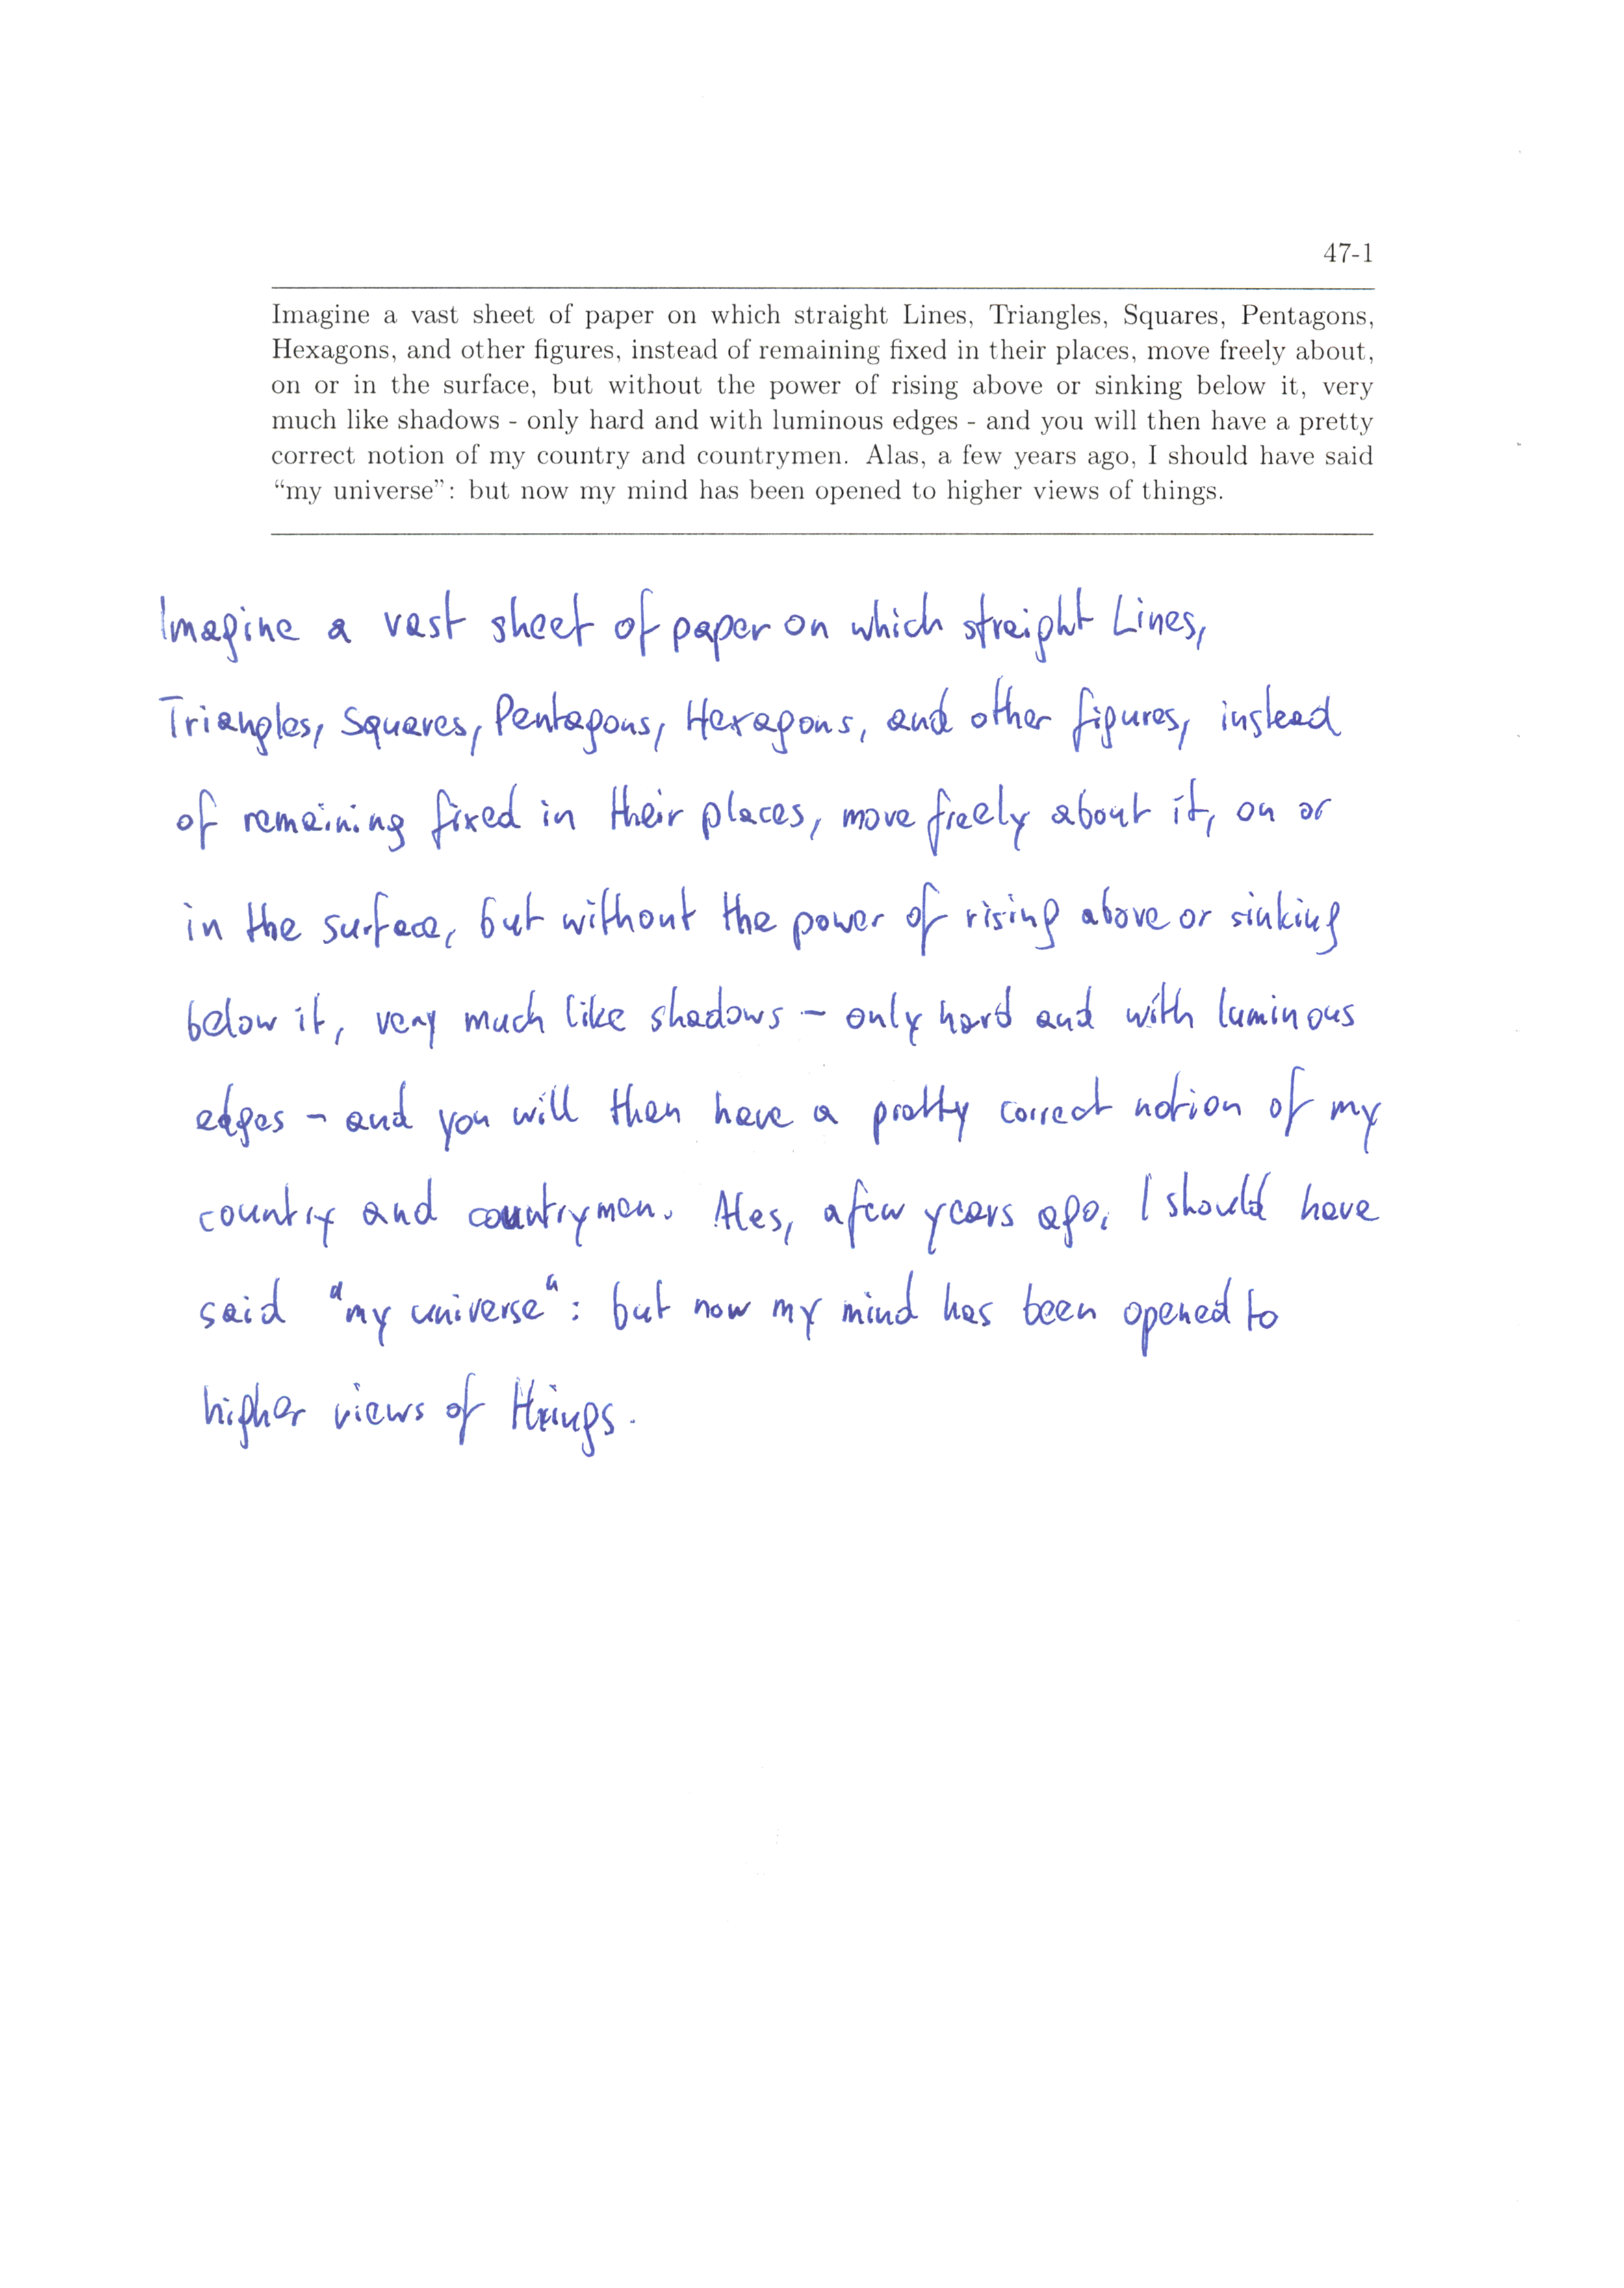 47-1
Imagine a vast sheet of paper on which straight Lines, Triangles, Squares, Pentagons,
Hexagons, and other figures, instead of remaining fixed in their places, move freely about,
on or in the surface, but without the power of rising above or sinking below it, very
much like shadows - only hard and with luminous edges - and you will then have a pretty
correct notion of my country and countrymen. Alas, a few years ago, I should have said
“my universe”: but now my mind has been opened to higher views of things.
Imagine a vast sheet of paper on which straight Lines,
Triangles, Squares, Pentagons, Hexagons, and other figures, instead
of remaining fixed in their places, move freely about it, on or
in the surface, but without the power of rising above or sinking
below it, very much like shadows - only hard and with luminous
edges - and you will then have a pretty correct notion of my
country and countrymen. Alas, a few years ago, I should have
said "my universe": but now my mind has been opened to
higher views of things.